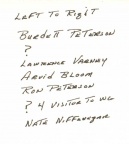 Left To Right
Burdett Peterson
?
Lawrence Varney
Arvid Bloom
Ron Peterson
? 4 Visitor To WG
Nate Niffenegger